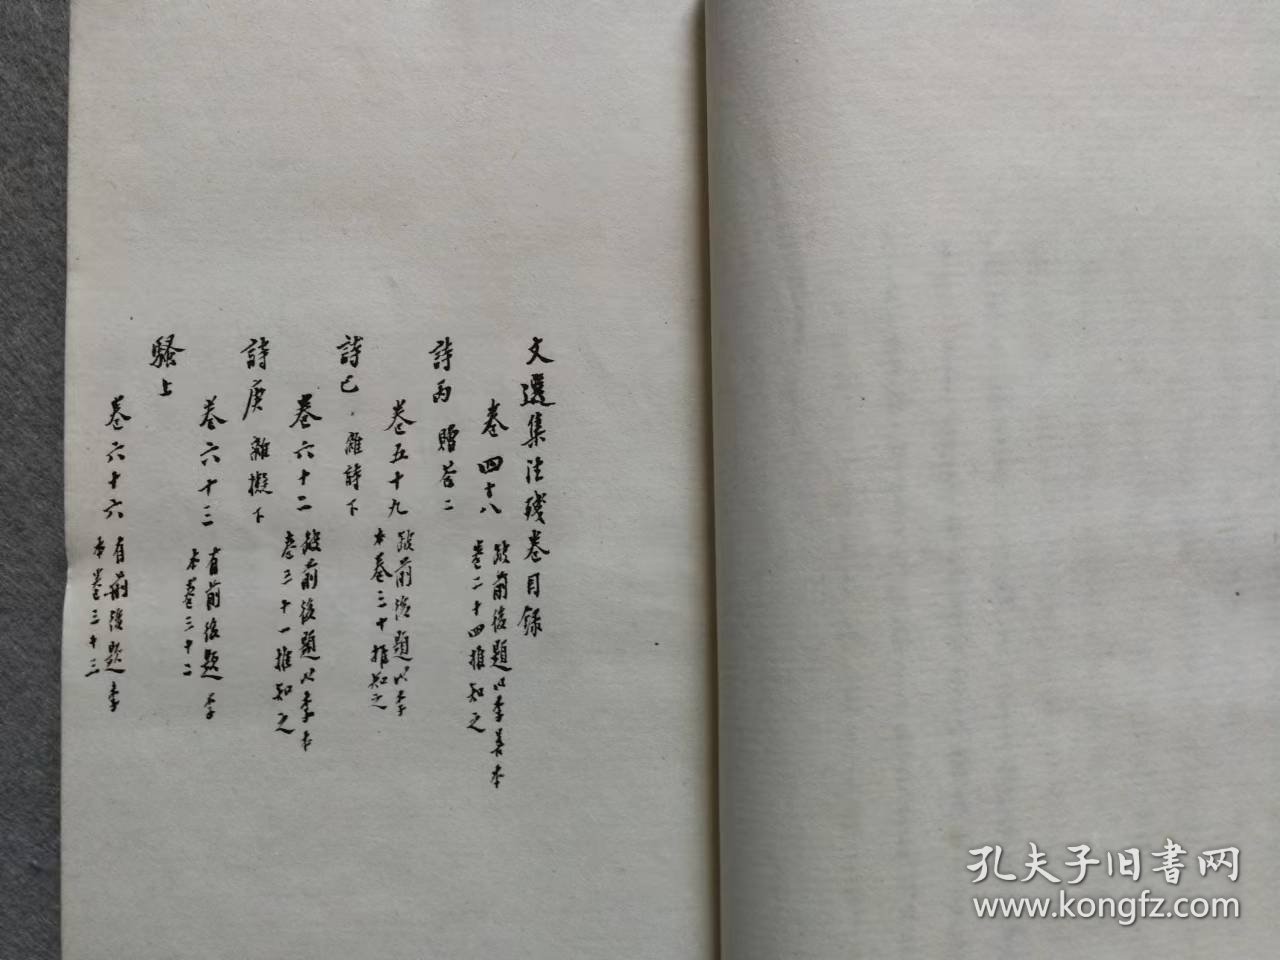 文選集注殘卷目錄
卷四十八 缺前後題以李善本
卷二十四推知之
詩丙 贈荅二
卷五十九 缺前後題以李
本卷三十推知之
詩己 雜詩下
卷六十二 缺前後題以李本
卷三十一推知之
詩庚 雜擬下
卷六十三 有前後題李
本卷三十二
騷上
卷六十六 有前後題李
本卷三十三
孔夫子旧書网
www.kongfz.com